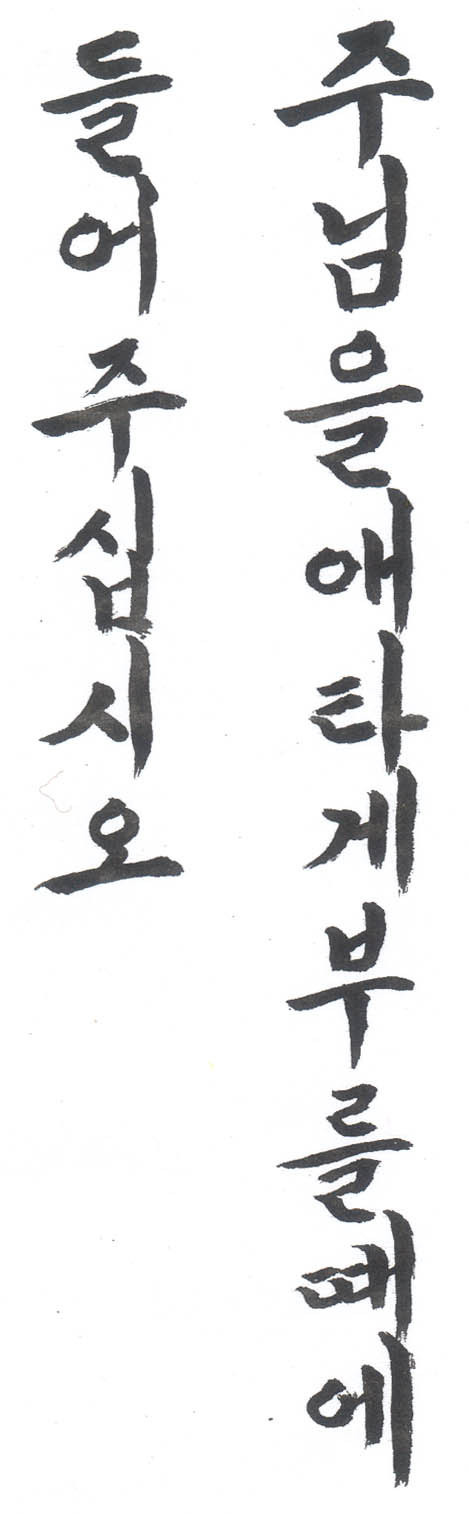 주님을애타게부를때에
들어주십시오